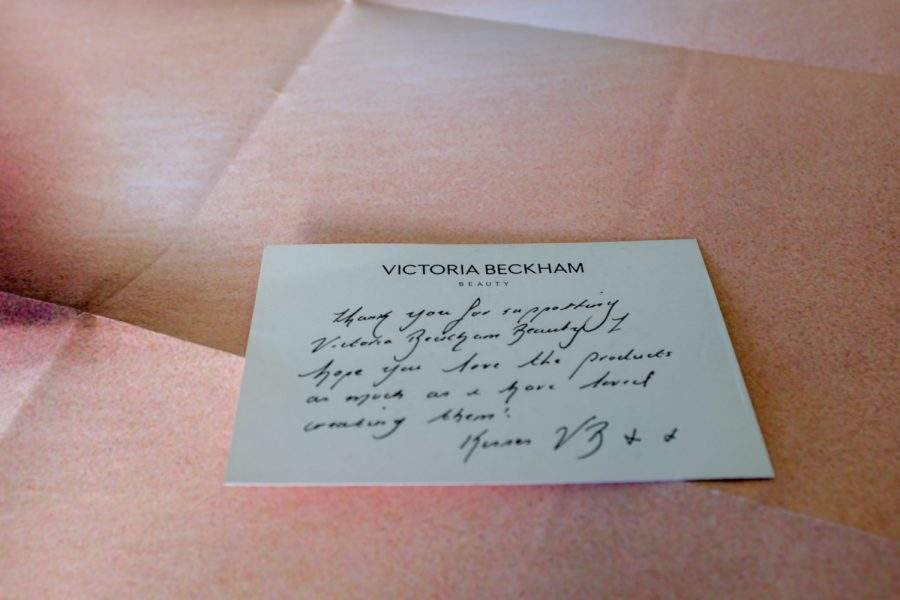 VICTORIA BECKHAM
BEAUTY
thank you for supporting
Victoria Beckham Beauty I
hope you love the products
as much as I have loved
creating them!
Kisses VB x x